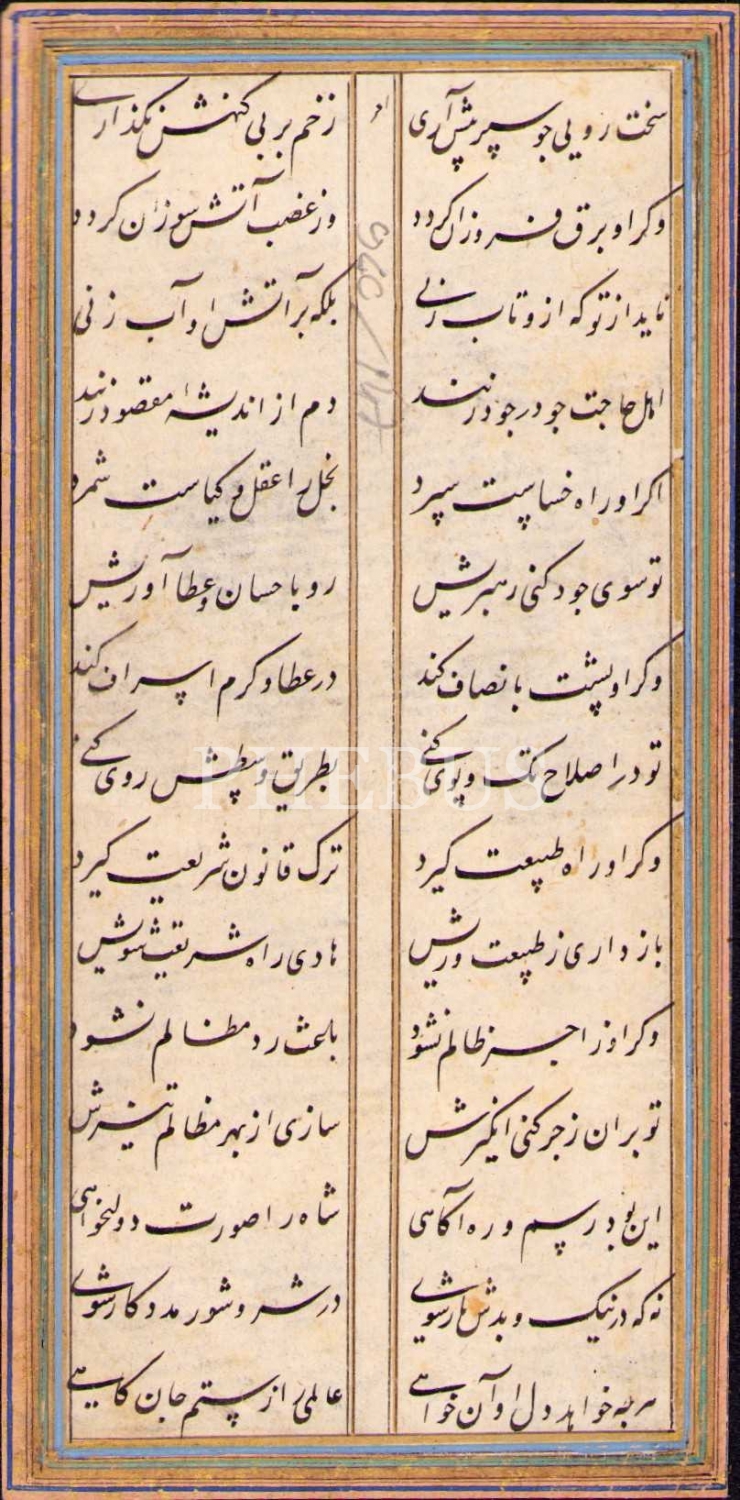 سخت رویی چو سپر پیش آری
زخم بر بی کنهش نکذاری
وکر او برق فروزان کردد
وز غضب آتش سوزان کردد
ناید از تو که ازو تاب زنی
بلکه بر آتش او آب زنی
اهل حاجت چو در جود زنند
دم از اندیشهٔ مقصود زنند
اکر او راه خساست سپرد
بخل را عقل و کیاست شمرد
تو سوی جود کنی رهبریش
رو باحسان و عطا آوریش
وکر او پشت بانصاف کند
در عطا و کرم اسراف کند
تو در اصلاح تک و پوی کنی
بطریق وسطش روی کنی
وکر او راه طبیعت کیرد
ترک قانون شریعت کیرد
باز داری ز طبیعت وریش
هادی راه شریعت شویش
وکر او زاجر ظالم نشود
باعث رد مظالم نشود
تو بران زجر کنی انکیزش
سازی از بهر مظالم تیزش
این بود رسم و ره آکاهی
شاه را صورت دولتخواهی
نه که در نیک و بدش یار شوی
در شر و شور مددکار شوی
هر چه خواهد دل او آن خواهی
عالمی را ز ستم جان کاهی
PHEBUS